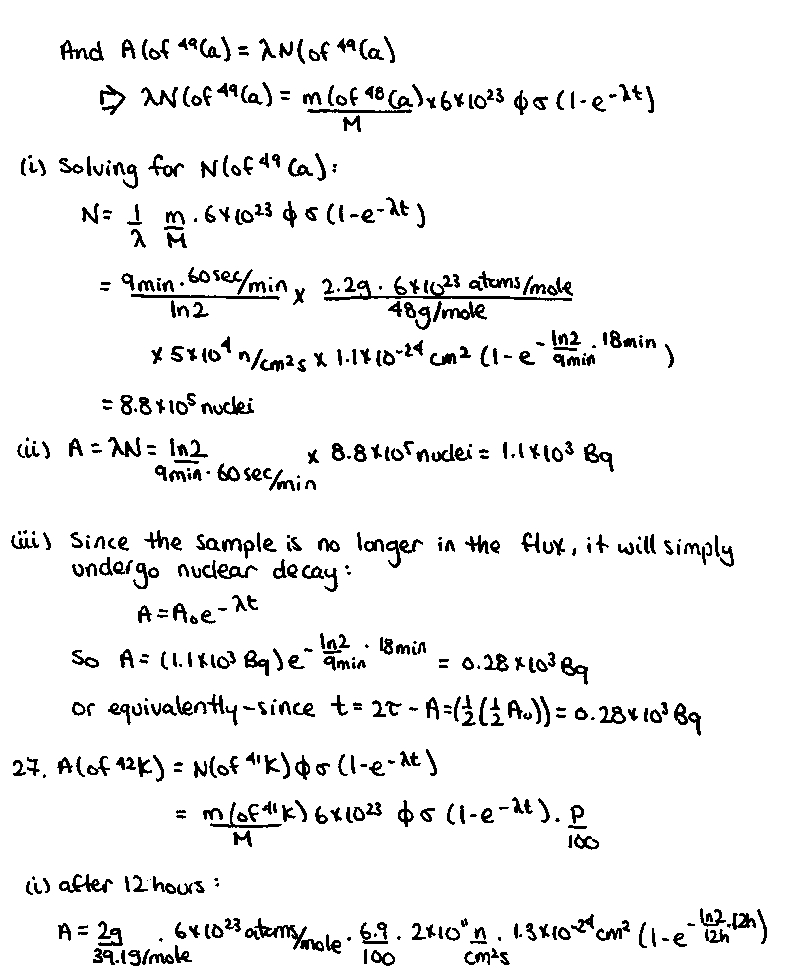 And A(of ⁴⁹Ca) = λN(of ⁴⁹Ca)
⇨ λN(of ⁴⁹Ca) = m(of ⁴⁸Ca)/M × 6×10²³ φσ(1-e^-λt)
(i) Solving for N(of ⁴⁹Ca):
N = 1/λ m/M · 6×10²³ φσ(1-e^-λt)
= 9min·60sec/min / ln2 × 2.2g · 6×10²³ atoms/mole / 48g/mole
× 5×10⁴ n/cm²s × 1.1×10⁻²⁴ cm² (1-e^-ln2/9min · 18min)
= 8.8×10⁵ nuclei
(ii) A = λN = ln2 / 9min·60sec/min × 8.8×10⁵ nuclei = 1.1×10³ Bq
(iii) Since the sample is no longer in the flux, it will simply
undergo nuclear decay:
A = A₀e^-λt
So A = (1.1×10³ Bq)e^-ln2/9min · 18min = 0.28×10³ Bq
or equivalently - since t = 2τ - A = (½(½A₀)) = 0.28×10³ Bq
27. A(of ⁴²K) = N(of ⁴¹K)φσ(1-e^-λt)
= m(of ⁴¹K)/M 6×10²³ φσ(1-e^-λt) · P/100
(i) after 12 hours:
A = 2g / 39.1g/mole · 6×10²³ atoms/mole · 6.9/100 · 2×10¹¹ n/cm²s · 1.3×10⁻²⁴ cm² (1-e^-ln2/12h · 12h)